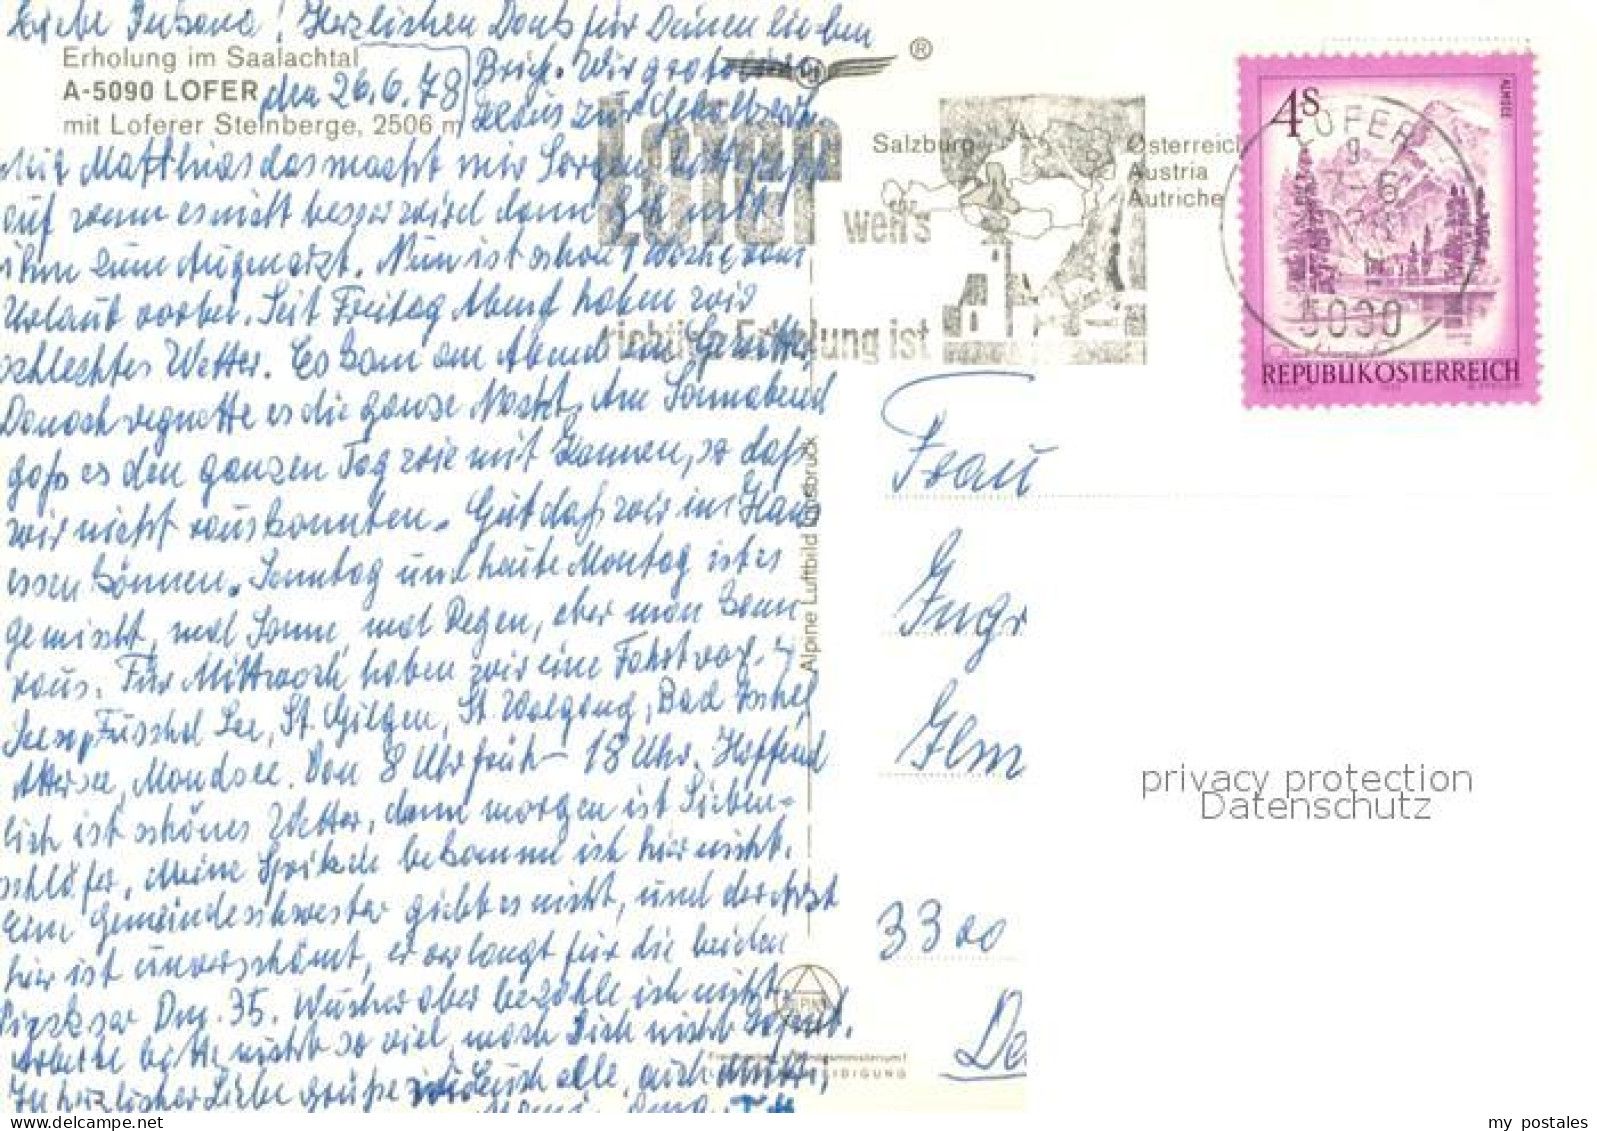 Liebe Ingbone! Herzlichen Dank für Deinen lieben
Erholung im Saalachtal
A-5090 LOFER
mit Loferer Steinberge, 2506 m
den 26.6.78
Brief. Wir
zur
Mit Matthias das macht mir Sorgen, bitte
auf wenn es nicht besser wird dann geh mit
ihm zum Augenarzt. Nun ist schon 1 Woche vom
Urlaub vorbei. Seit Freitag Abend haben wir
schlechtes Wetter. Es kam am Abend ein Gewitter,
Danach regnete es die ganze Nacht. Am Sonnabend
goß es den ganzen Tag wie mit Kannen, so daß
wir nicht rauskonnten. Gut daß wir im Haus
essen können. Sonntag und heute Montag ist es
gemischt, mal Sonne, mal Regen, aber man kann
raus. Für Mittwoch haben wir eine Fahrt
Fuschel See, St. Gilgen, St. Wolfgang, Bad Ischel,
Attersee, Mondsee. Von 8 Uhr früh – 18 Uhr. Hoffend
lich ist schönes Wetter, denn morgen ist Sieben-
schläfer. Meine Spritzen bekomme ich hier nicht.
Eine Gemeindeschwester giebt es nicht, und der Arzt
hier ist unverschämt, er verlangt für die beiden
Pickser Dm. 35. Wucher aber bezahle ich nicht.
Arbeite bitte nicht so viel, mach Dich nicht kaputt.
In herzlicher Liebe grüße Euch alle, auch
Alpine Luftbild Innsbruck
Lofer
Salzburg
Österreich
Austria
Autriche
wo's
richtige Erholung ist
®
4S
ALMSEE
LOFER
9
5090
REPUBLIK ÖSTERREICH
Frau
Ingr
Ilm
3300
De
privacy protection
Datenschutz
my postales